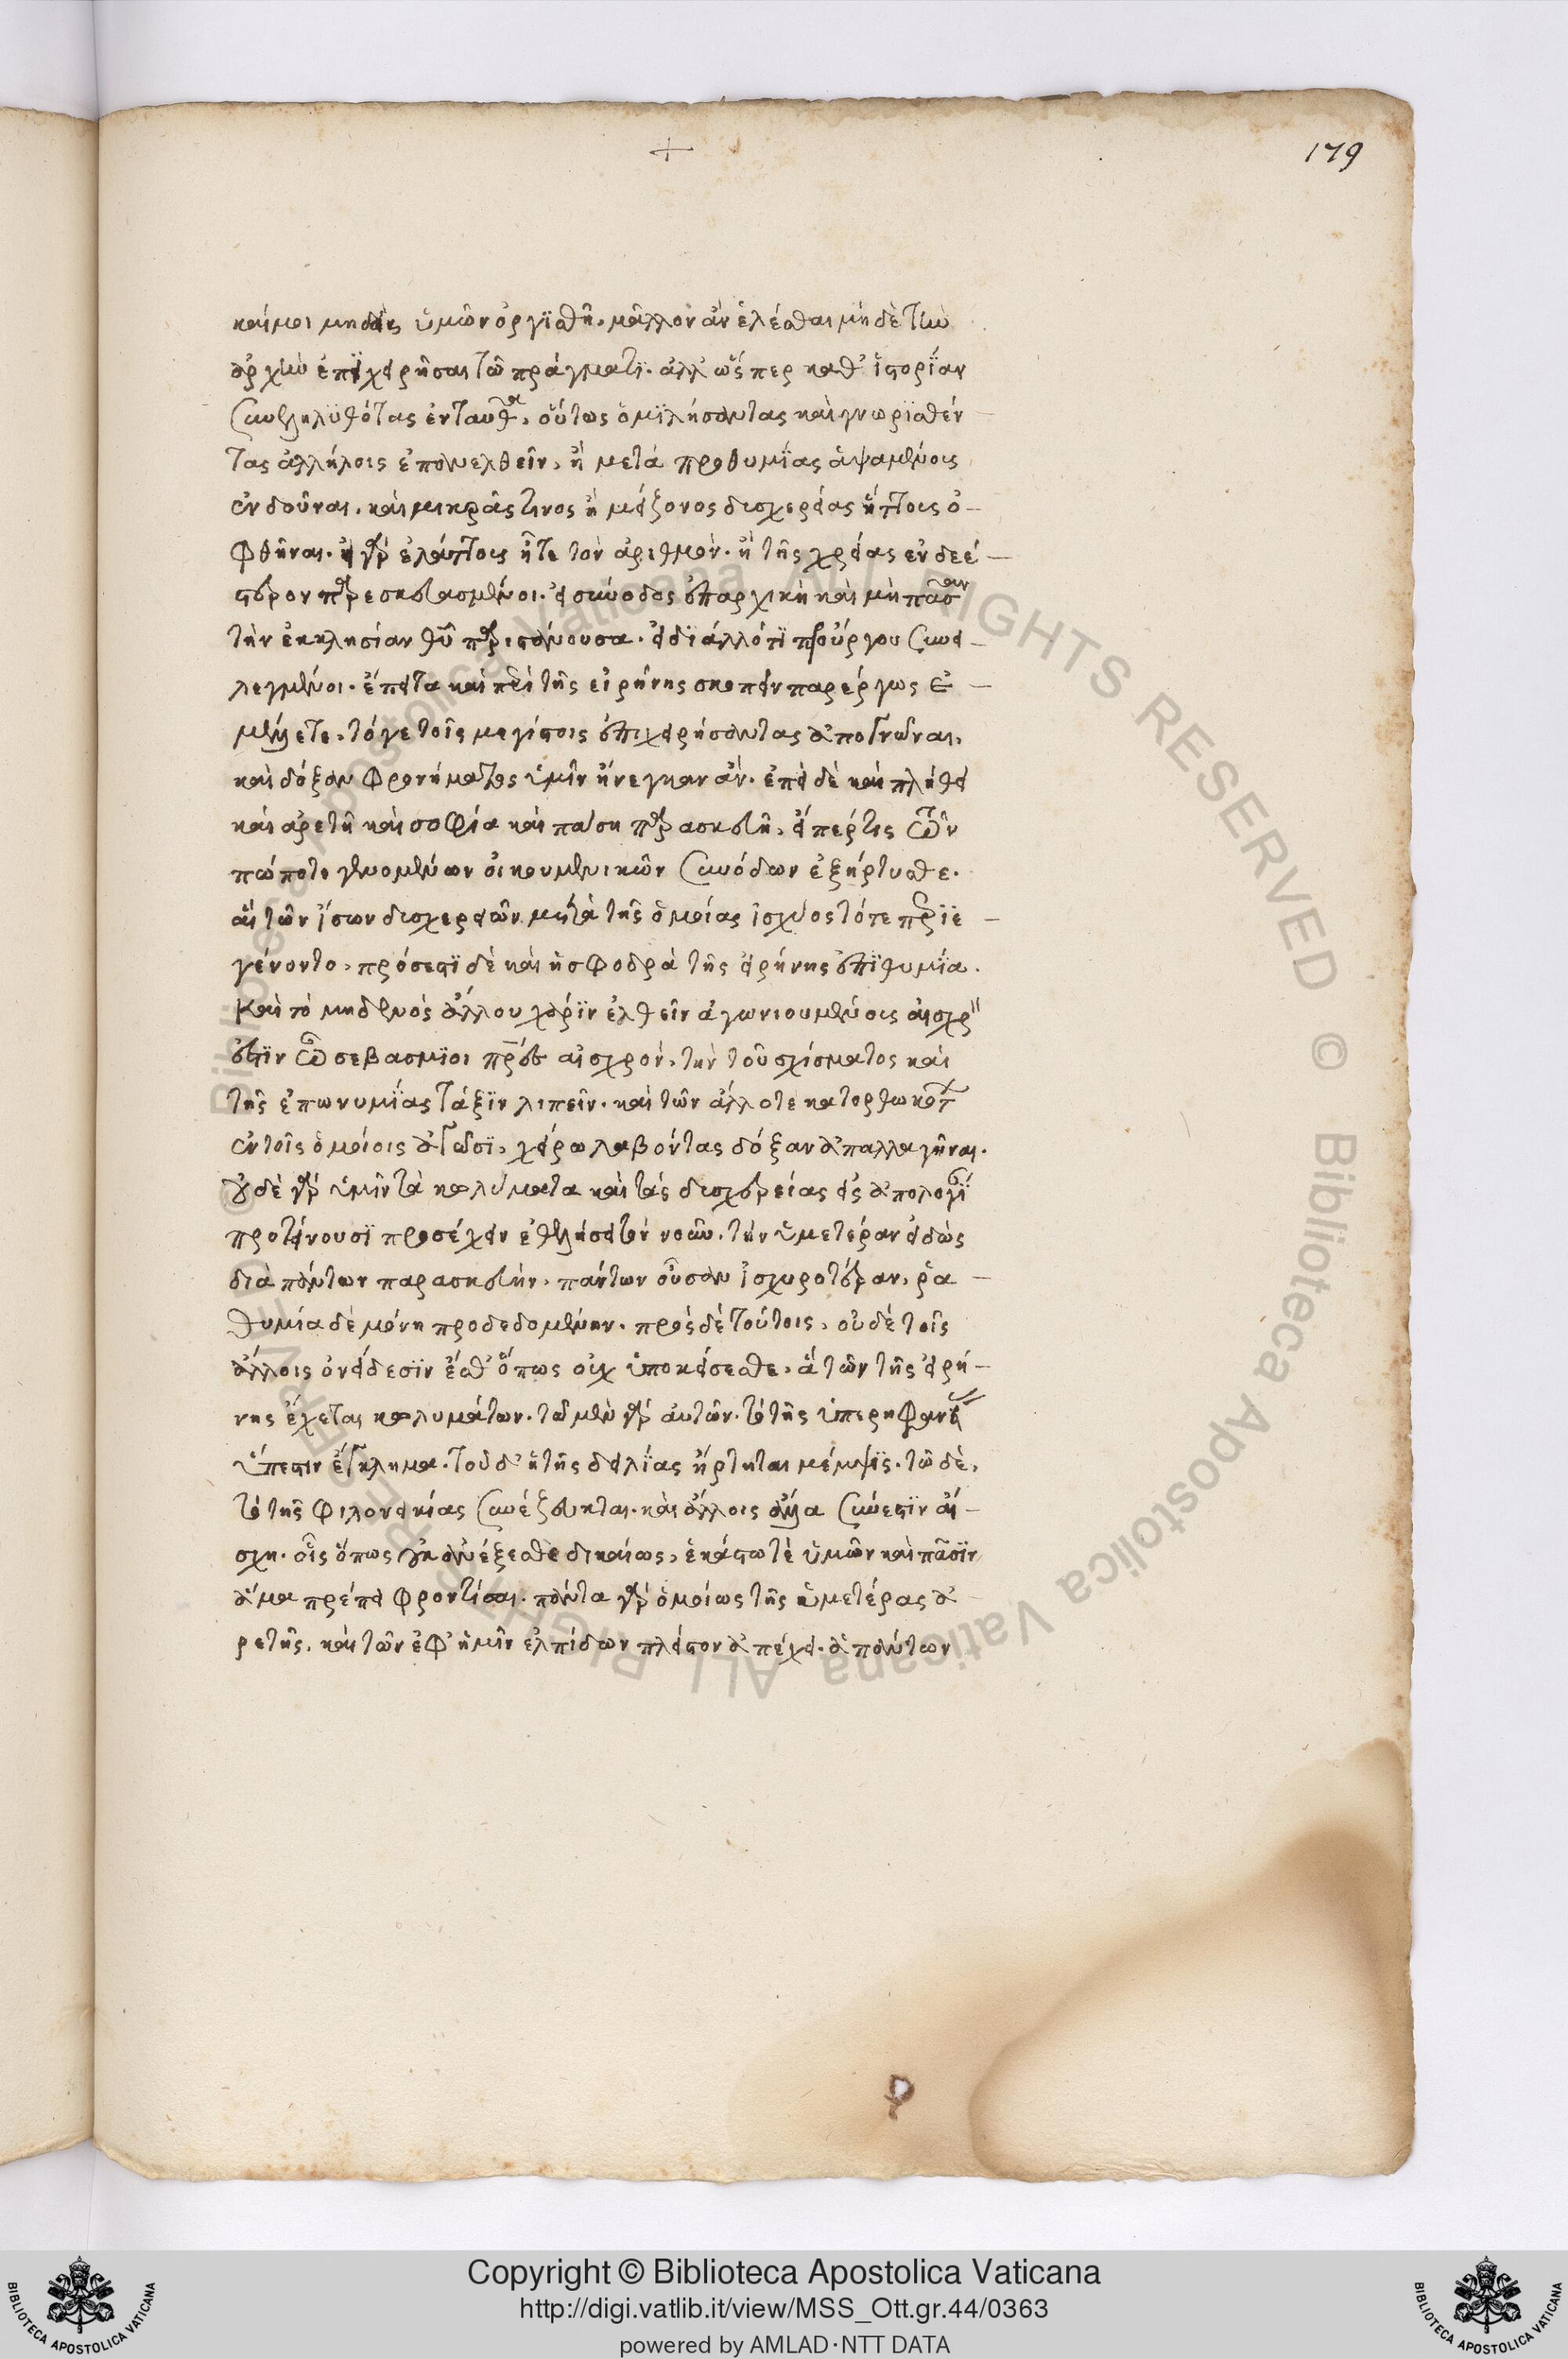 179
καί μοι μηδεὶς ὑμῶν ὀργισθῆ. μᾶλλον ἂν ἑλέσθαι μὴ δὲ τὴν
ἀρχὴν ἐπιχειρῆσαι τῶ πράγματι. ἀλλ' ὥσπερ καθ' ἱστορίαν
συνεληλυθότας ἐνταῦθα, οὕτως ὁμιλήσαντας καὶ γνωρισθέν
τας ἀλλήλοις ἐπανελθεῖν, ἢ μετὰ προθυμίας ἁψαμένοις
ἐνδοῦναι. καὶ μικρᾶς τινος ἢ μείζονος δυσχερείας ἥττοις ὀ-
φθῆναι. εἰ γὰρ ἐλάττοις ἦτε τὸν ἀριθμὸν. ἢ τῆς χρείας ἐνδεέ-
στερον παρεσκευασμένοι. εἰ σύνοδος ἐπαρχικὴ καὶ μὴ πᾶσαν
τὴν ἐκκλησίαν θεοῦ παριστάνουσα. εἰ δι' ἄλλό τι προὔργου συνει-
λεγμένοι. ἔπειτα καὶ περὶ τῆς εἰρήνης σκοπεῖν παρέργως ἐ-
μέλλετε. τό γε τοῖς μεγίστοις ἐπιχειρήσαντας ἀπογνῶναι,
καὶ δόξαν φρονήματος ὑμῖν ἤνεγκαν ἄν. ἐπεὶ δὲ καὶ πλήθει
καὶ ἀρετῆ καὶ σοφία καὶ πάση παρασκευῆ, εἴπερ τις τῶν
πώποτε γενομένων οἰκουμενικῶν συνόδων ἐξήρτυσθε.
αἳ τῶν ἴσων δυσχερειῶν μετὰ τῆς ὁμοίας ἰσχύος τότε περιε-
γένοντο, πρόσεστι δὲ καὶ ἡ σφοδρὰ τῆς εἰρήνης ἐπιθυμία.
καὶ τὸ μηδενὸς ἄλλου χάριν ἐλθεῖν ἀγωνιουμένους αἰσχρ
ἐστὶν ὦ σεβασμιοι πατέρες αἰσχρὸν, τὴν τοῦ σχίσματος καὶ
τῆς ἐπωνυμίας τάξιν λιπεῖν. καὶ τῶν ἄλλοτε κατορθωκότων
ἐν τοῖς ὁμοίοις ἀγῶσι, χείρω λαβόντας δόξαν ἀπαλλαγῆναι.
οὐδὲ γὰρ ὑμῖν τὰ κωλύματα καὶ τὰς δυσχερείας εἰς ἀπολογίαν
προτείνουσι προσέχειν ἐθελήσει τὸν νοῦν. τὴν ὑμετέραν εἰδὼς
διὰ πάντων παρασκευὴν, πάντων οὖσαν ἰσχυροτέραν, ῥα-
θυμία δὲ μόνη προδεδομένην. πρὸς δὲ τούτοις, οὐδὲ τοῖς
ἄλλοις ὀνείδεσιν ἔσθ' ὅπως οὐχ ὑποκείσεσθε, ἃ τῶν τῆς εἰρή-
νης ἔχεται κωλυμάτων. τῶ μὲν γὰρ αὐτῶν. τὸ τῆς ὑπερηφανείας
ὕπεστιν ἔγκλημα. τοῦ δ' ἡ τῆς δειλίας ἤρτηται μέμψις. τῶ δὲ,
τὸ τῆς φιλονεικίας συνέζευκται. καὶ ἄλλοις ἄλλα σύνεστιν αἴ-
σχη. οἷς ὅπως οὐκ ἀνέξεσθε δικαίως, ἑκάστω τὲ ὑμῶν καὶ πᾶσιν
ἅμα πρέπει φροντίσαι. πάντα γὰρ ὁμοίως τῆς ὑμετέρας ἀ-
ρετῆς. καὶ τῶν ἐφ' ἡμῖν ἐλπίδων πλεῖστον ἀπέχει. ἃ πάντων
Copyright © Biblioteca Apostolica Vaticana
http://digi.vatlib.it/view/MSS_Ott.gr.44/0363
powered by AMLAD·NTT DATA
BIBLIOTECA APOSTOLICA VATICANA
BIBLIOTECA APOSTOLICA VATICANA
© Biblioteca Apostolica Vaticana ALL RIGHTS RESERVED © Biblioteca Apostolica Vaticana ALL RIGHTS RESERVED